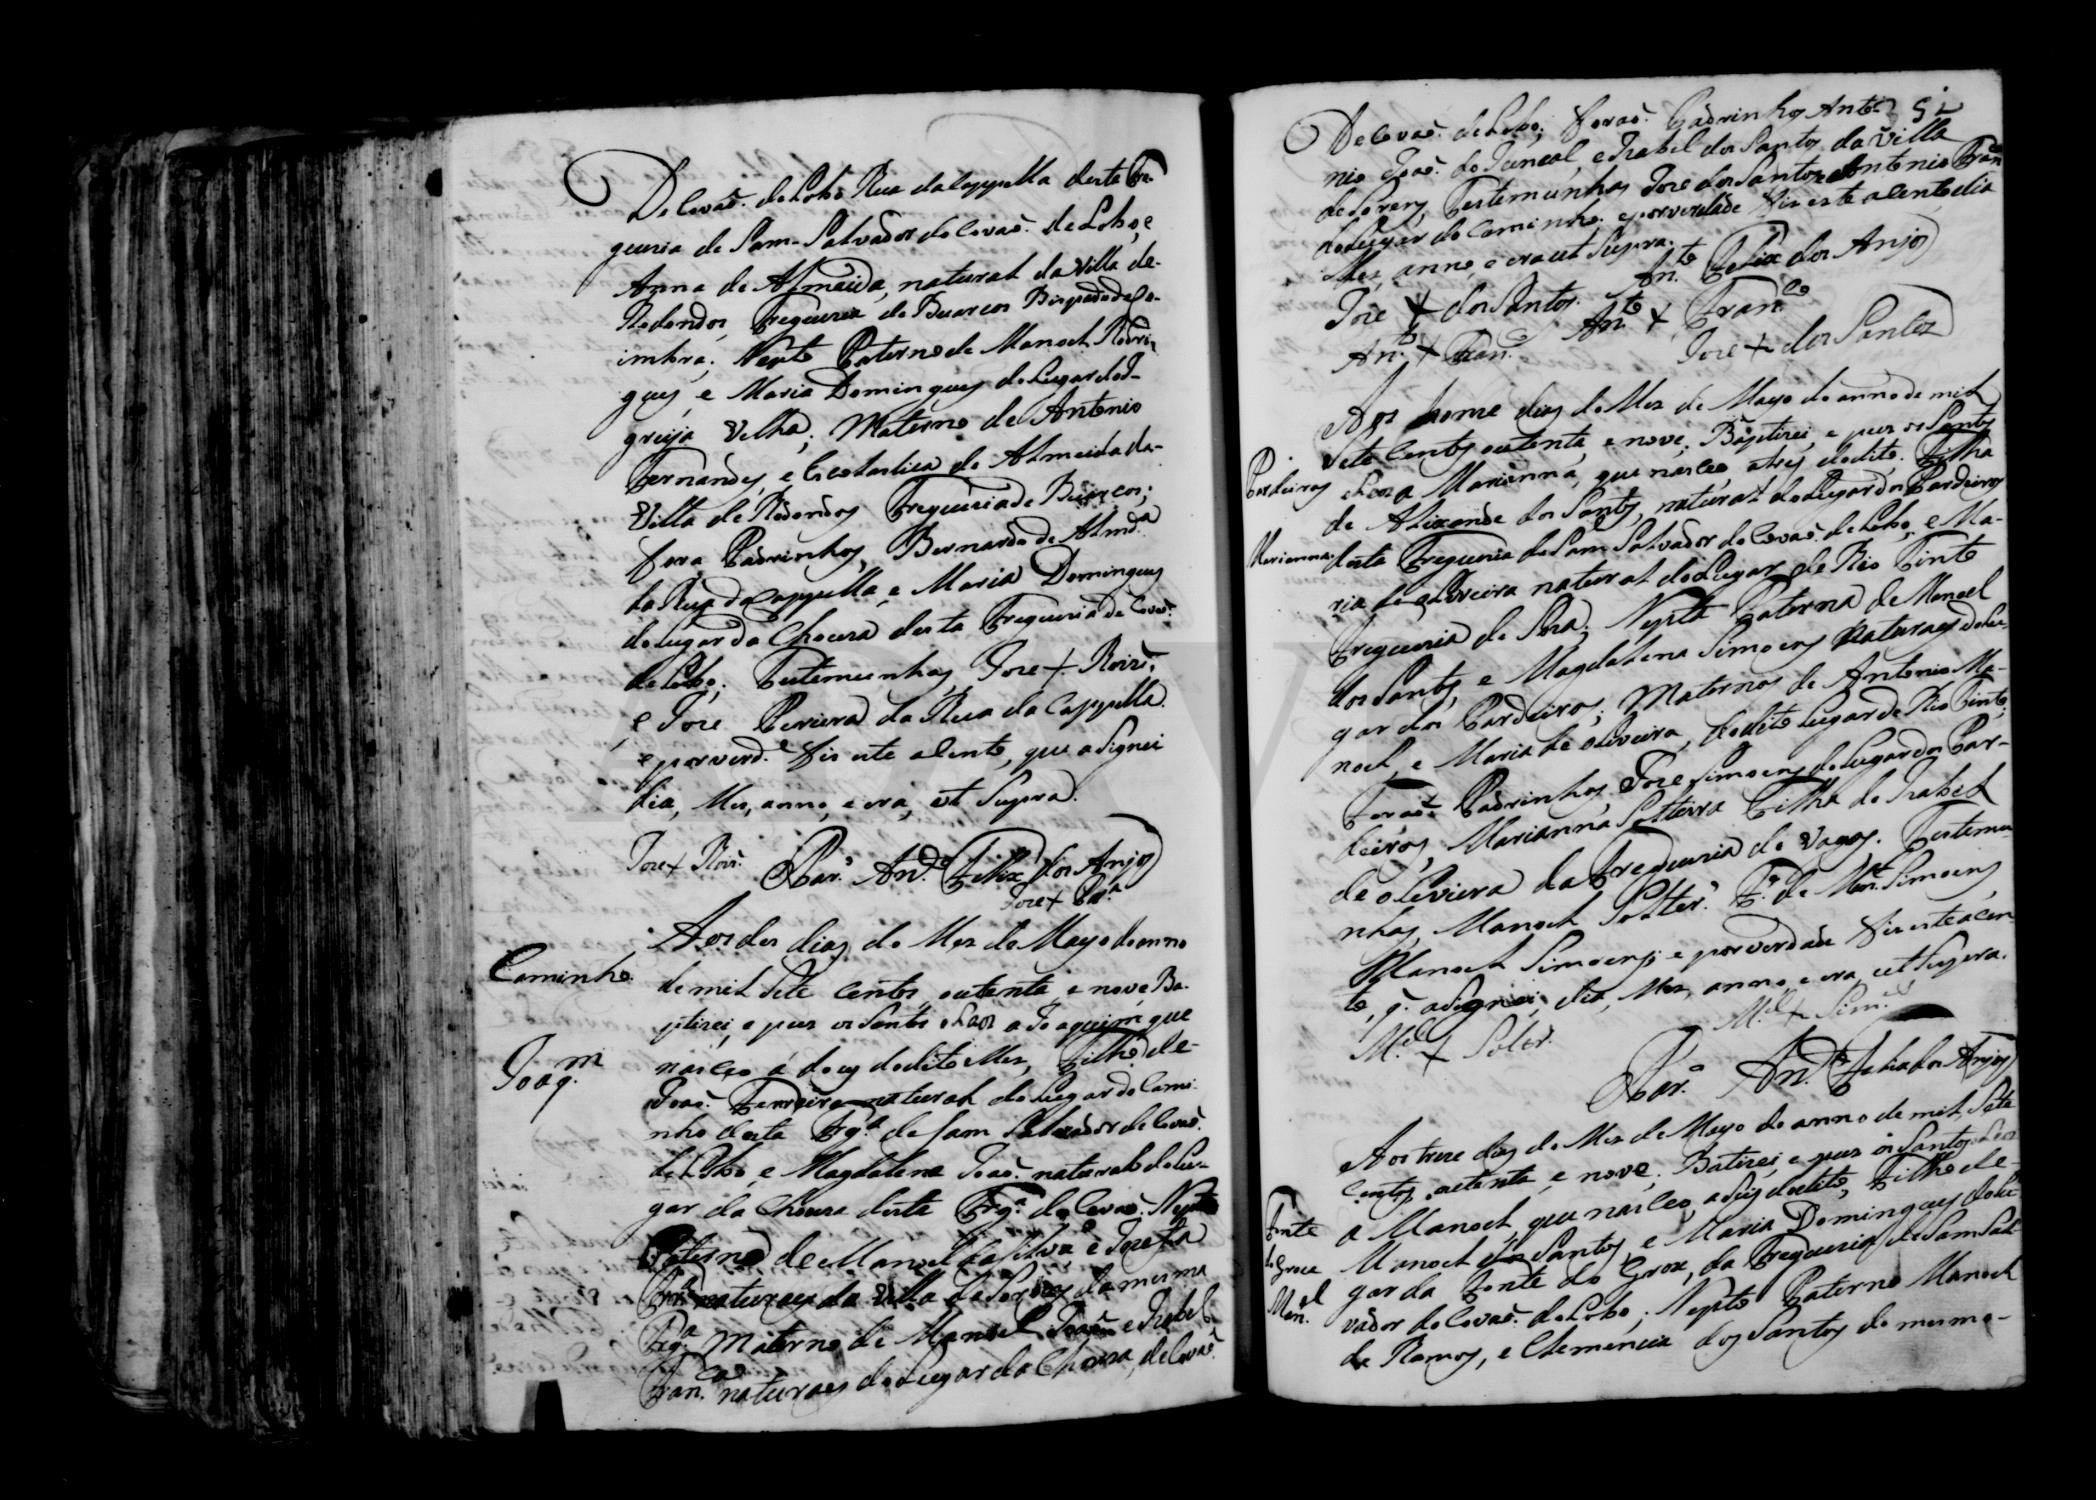 De Covaõ. do Lobo Rua da Cappella desta Fre-
guezia de Sam-Salvador do Covaõ. de Lobo, e
Anna de Almeida, natural da Villa de-
Redondos Freguezia de Buarcos Bispado de Co-
imbra; Nepto Paterno de Manoel Rodri-
gues, e Maria Domingues do Lugar da I-
greija Velha; Materno de Antonio
Fernandes, e Escolastica de Almeida da-
Villa de Redondos Freguezia de Buarcos;
fora Padrinhos, Bernardo de Almdª.
da Rua da Cappella, e Maria Domingues
do Lugar da Choura desta Freguezia de Covaõ.
de Lobo; Testemunhas, Joze + Roiz.
e Joze Periera da Rua da Cappella.
e por verdᵉ. fis este acento, que asignei
dia, Mes, anno, e era, ut Supra.
Joze + Roiz. Par.º Antº. Felix dos Anjos
Joze + Prª.
Caminho.
Joaqᵐ.
Aos des dias do Mes de Mayo do anno
de mil Sete Centos, outenta, e nove, Ba-
ptizei, e pus os Santos oLeos a Joaquim que
nasceo á dous do dito Mes, Filho de-
Joaõ. Ferreira natural do Lugar do Cami-
nho desta Frgª. de Sam Salvador de Covaõ.
de Lobo, e Magdalena Joaõ. natural do Lu-
gar da Choura desta Frgª. do Covaõ. Nepto
Paterno de Manoel da Silvaˣ, e Josefa
naturaes da Villa de Sorens da mesma
Frgª. Materno de Manoel Joaõ e Izabel
Franᶜᵃ. naturaes do Lugar da Choura, de Covaõ.
52
De Covaõ. de Lobo; Foraõ. Padrinhos Anto-
nio Joaõ. do Juncal, e Izabel dos Santos da Villa
de Sorens, Testemunhas Joze dos Santos e Antonio Fran
do Lugar do Caminho; e por verdade fis este acento dia
Mes, anno, e era ut Supra.
Anᵗᵒ. Felix dos Anjos
Joze + dos Santos. Anᵗᵒ + Franᶜᵒ
Anᵗᵒ. + Franᶜᵒ. Joze + dos Santos
Pardeiros
Marianna.
Aos honze dias do Mes de Mayo do anno de mil
Sete Centos outenta, e nove; Baptizei, e pus os Santos
oLeos a Marianna, que nasceo a tres do dito. Filha
de Alixandre dos Santos, natural do Lugar dos Pardeiros
desta Freguezia de Sam Salvador do Covaõ. de Lobo, e Ma-
ria de oLiveira natural do Lugar de Rio Tinto
Freguezia de Soza; Nepta Paterna de Manoel
dos Santos, e Magdalena Simoens Naturaes do Lu-
gar dos Pardeiros; Maternos de Antonio Ma-
noel, e Maria de oLiveira, do dito Lugar de Rio Tinto;
Foraõ. Padrinhos, Joze Simoens do Lugar dos Par-
deiros, Marianna Solteira Filha de Izabel
de oLiviera da Freguezia de Vagos. Testemu-
nhas, Manoel Solterº. Fº. de Mel. Simoens,
Manoel Simoens; e por verdade fis este acen
to, q̃. asignei, dia, Mes, anno, e era, ut Supera.
Mᵉˡ + Simᵉˢ
Mᵉˡ + Solrº.
Par.º Antº. Felix dos Anjos
Fonte
do Groue
Manᵉˡ.
Aos treze dias do Mes de Mayo do anno de mil Sete
Centos, outenta, e nove; Batizei, e pus os Santos oLeos
a Manoel, que nasceo, a Seis do dito, Filho de-
Manoel dos Santos, e Maria Domingues do Lu-
gar da Fonte do Grou, da Freguezia de Sam Sal-
vador do Covaõ. do Lobo; Nepto Paterno Manoel
de Ramos, e Clemencia dos Santos do mesmo-